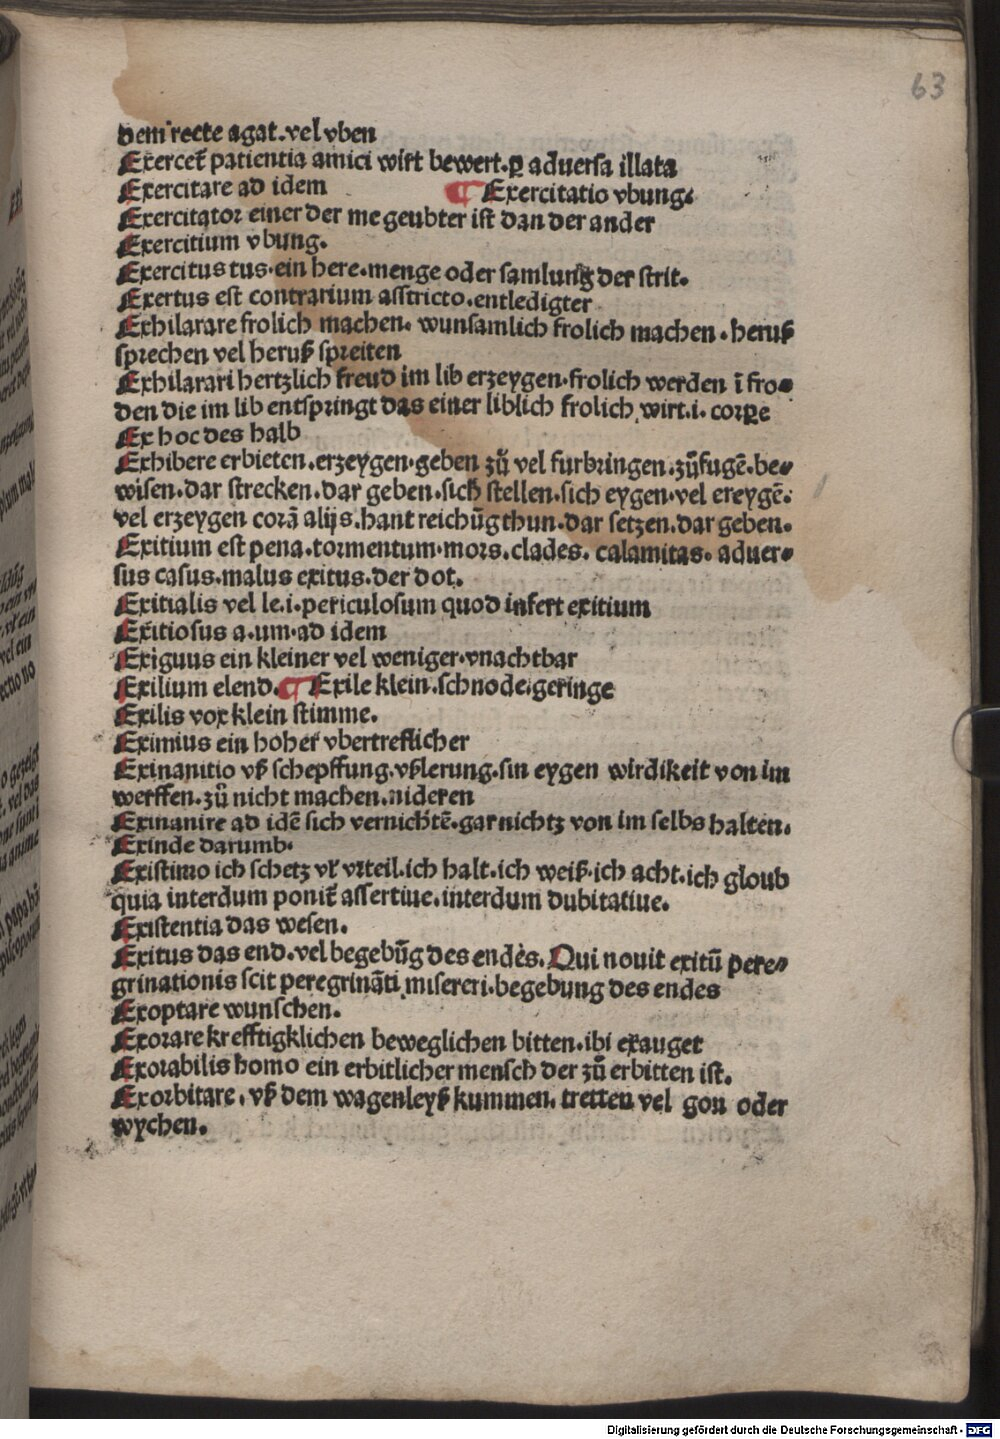 63
dem recte agat. vel vben
Exercet̄ patientia amici wirt bewert. ꝑ aduersa illata
Exercitare ad idem ¶ Exercitatio vbung.
Exercitator einer der me geubter ist dan der ander
Exercitium vbung.
Exercitus tus. ein here. menge oder samlung der strit.
Exertus est contrarium asstricto. entledigter
Exhilarare frolich machen. wunsamlich frolich machen. heruß
sprechen vel heruß spreiten
Exhilarari hertzlich freud im lib erzeygen. frolich werden ī fro-
den die im lib entspringt das einer liblich frolich wirt. i. corꝑe
Ex hoc des halb
Exhibere erbieten. erzeygen. geben zů vel furbringen. zůfugē. be-
wisen. dar strecken. dar geben. sich stellen. sich eygen. vel ereygē.
vel erzeygen corā alijs. hant reichūg thun. dar setzen. dar geben.
Exitium est pena. tormentum. mors. clades. calamitas. aduer-
sus casus. malus exitus. der dot.
Exitialis vel le. i. periculosum quod infert exitium
Exitiosus a. um. ad idem
Exiguus ein kleiner vel weniger. vnachtbar
Exilium elend. ¶ Exile klein. schnode. geringe
Exilis vox klein stimme.
Eximius ein hoher vbertreflicher
Exinanitio vß schepffung. vßlerung. sin eygen wirdikeit von im
werffen. zů nicht machen. nideren
Exinanire ad idē sich vernichtē. gar nichtz von im selbs halten.
Exinde darumb.
Existimo ich schetz vr̄ vrteil. ich halt. ich weiß. ich acht. ich gloub
quia interdum ponit̄ assertiue. interdum dubitatiue.
Existentia das wesen.
Exitus das end. vel begebūg des endes. Qui nouit exitū pere-
grinationis scit peregrināti misereri. begebung des endes
Exoptare wunschen.
Exorare krefftigklichen beweglichen bitten. ibi exauget
Exorabilis homo ein erbitlicher mensch der zů erbitten ist.
Exorbitare. vß dem wagenleyß kummen. tretten vel gon oder
wychen.
Digitalisierung gefördert durch die Deutsche Forschungsgemeinschaft - DFG